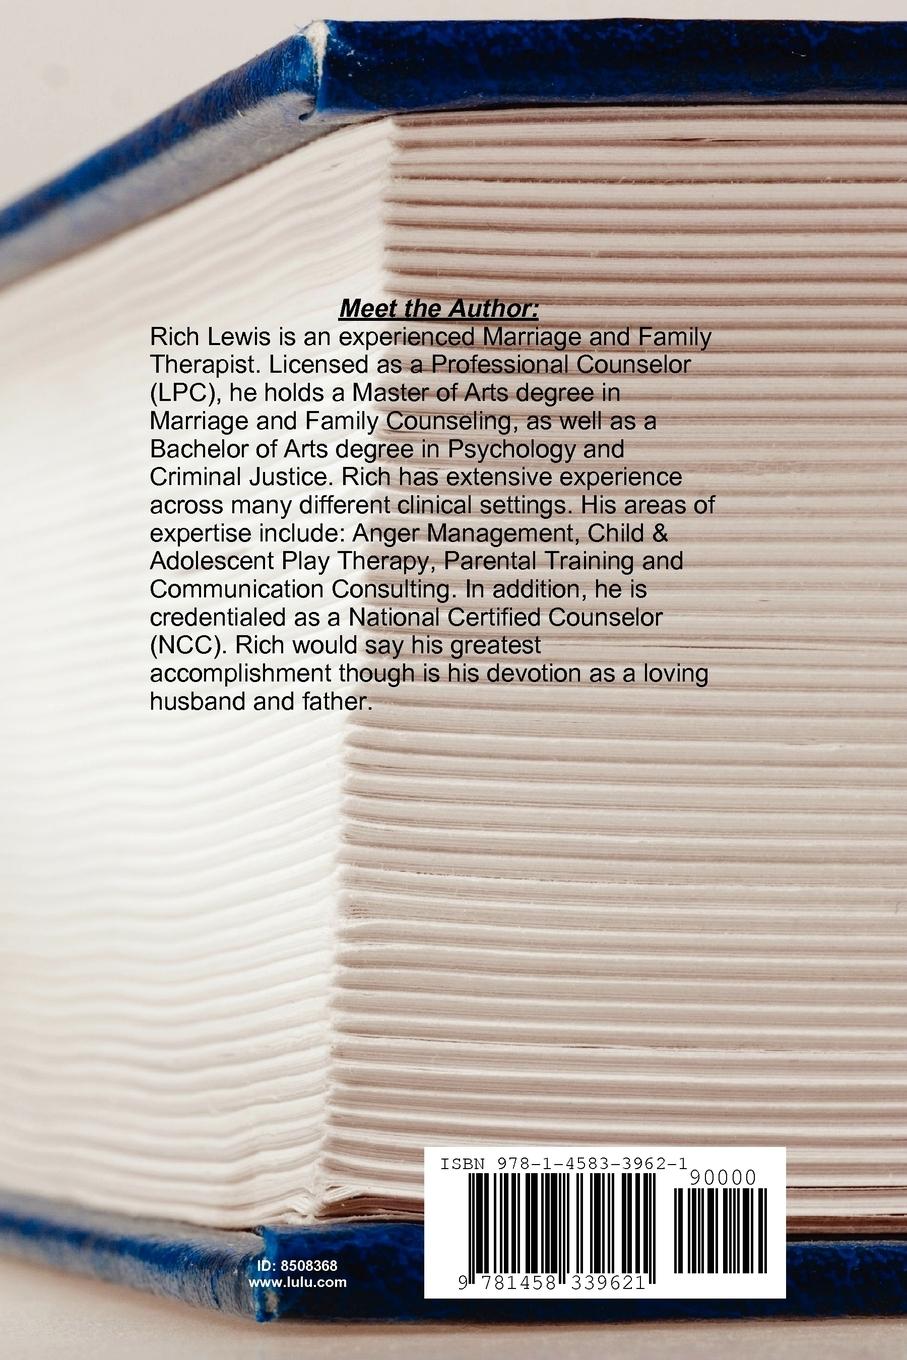 Meet the Author:
Rich Lewis is an experienced Marriage and Family
Therapist. Licensed as a Professional Counselor
(LPC), he holds a Master of Arts degree in
Marriage and Family Counseling, as well as a
Bachelor of Arts degree in Psychology and
Criminal Justice. Rich has extensive experience
across many different clinical settings. His areas of
expertise include: Anger Management, Child &
Adolescent Play Therapy, Parental Training and
Communication Consulting. In addition, he is
credentialed as a National Certified Counselor
(NCC). Rich would say his greatest
accomplishment though is his devotion as a loving
husband and father.
ISBN 978-1-4583-3962-1
90000
9 781458 339621
ID: 8508368
www.lulu.com